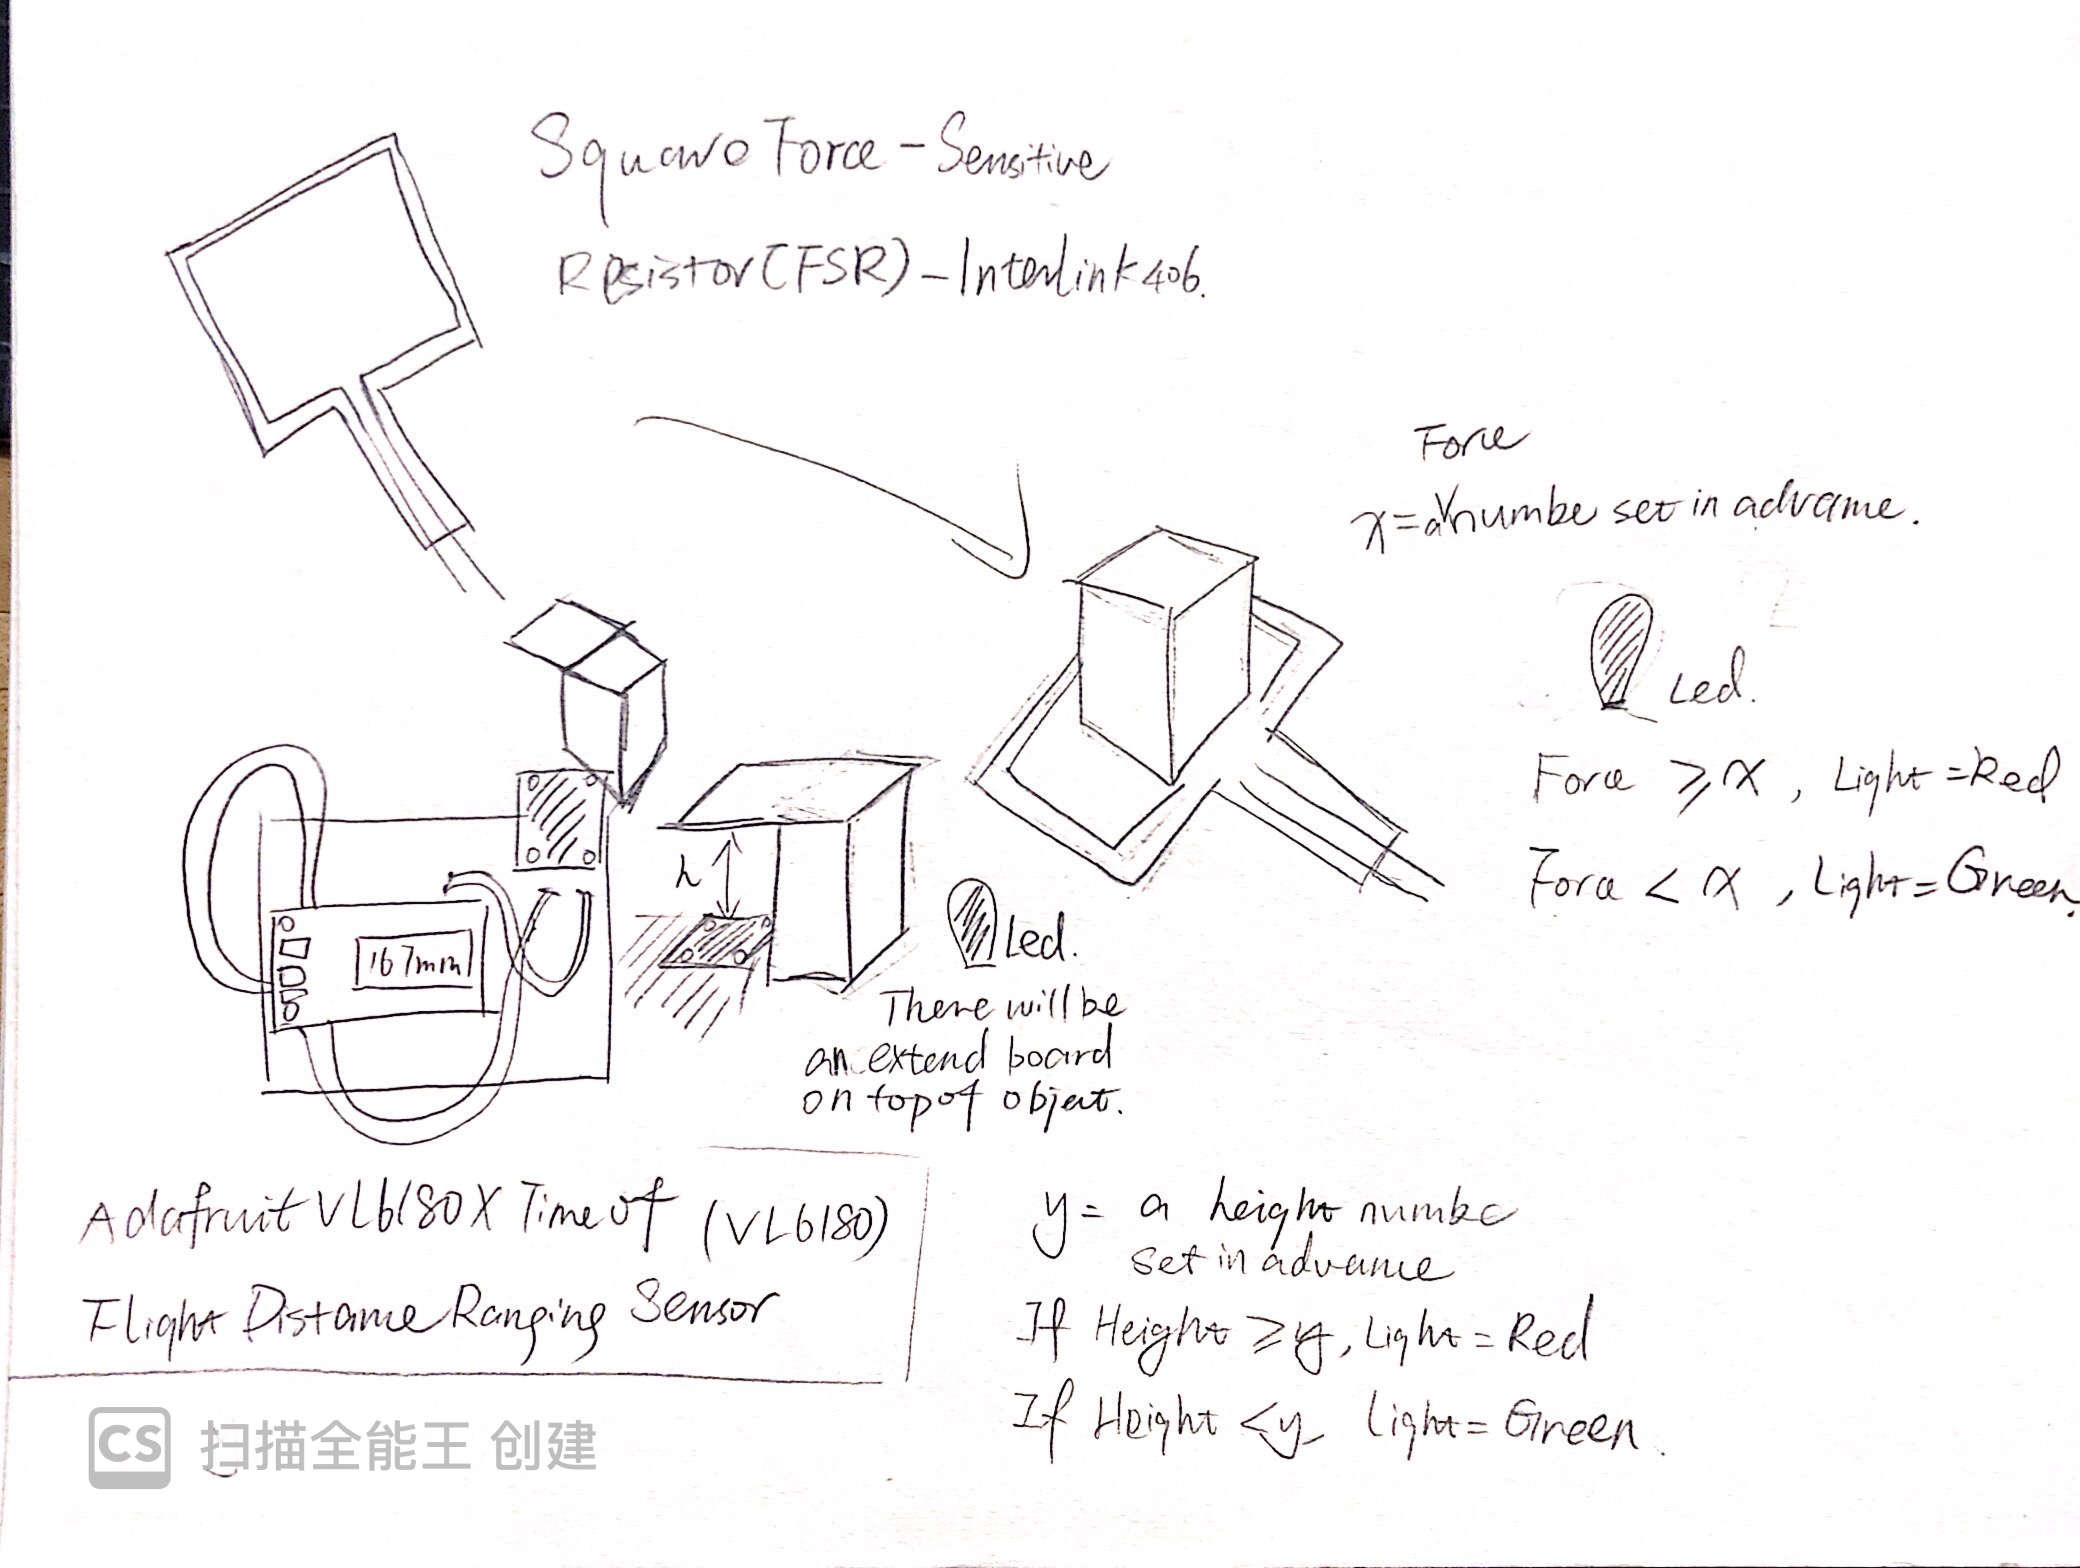 Square Force-Sensitive
Resistor(FSR)-Interlink 406.
Force
x = a numbe set in advance.
Led.
Force ≥ x, Light = Red
Force < x, Light = Green.
h
167mm
Led.
There will be
an extend board
on top of object.
Adafruit VL6180X Time of (VL6180)
Flight Distance Ranging Sensor
y = a height numbe
set in advance
If Height ≥ y, Light = Red
If Height < y light = Green.
CS 扫描全能王 创建